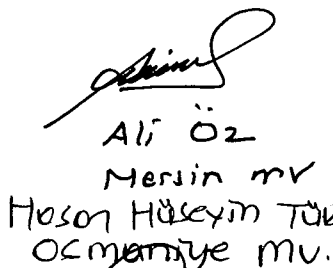 Ali Öz
Mersin mv
Hasan Hüseyin
Osmaniye mv.